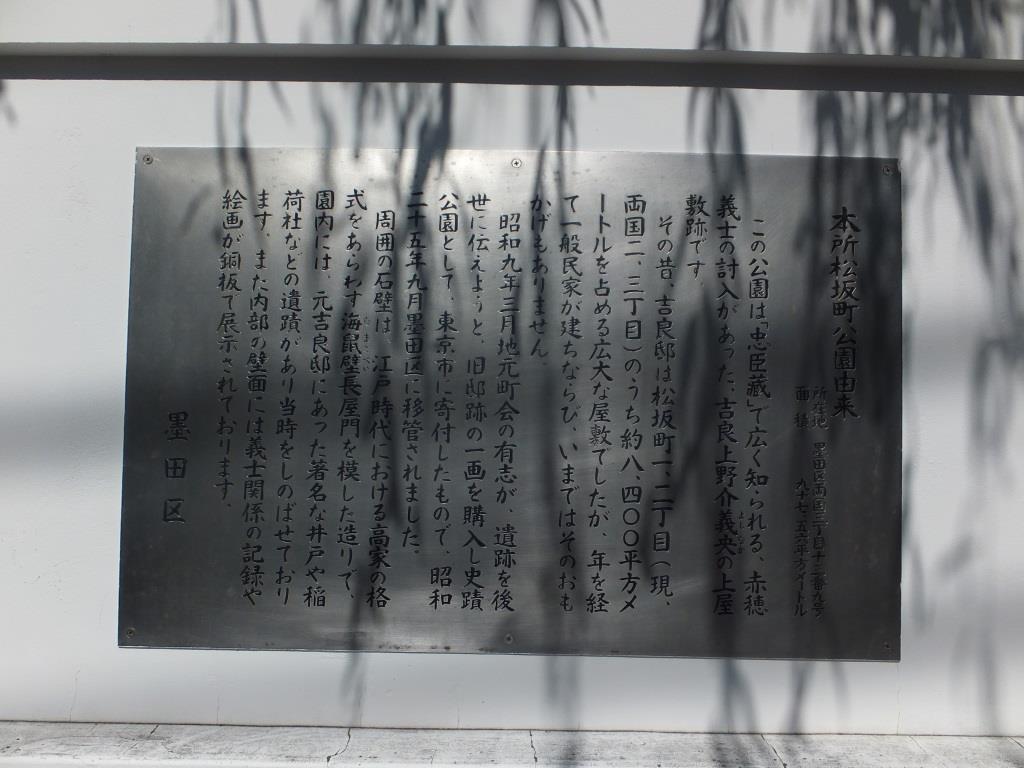 本所松坂町公園由来
所在地　墨田区両国三丁目十三番九号
面積　九十七・五六平方メートル
この公園は「忠臣蔵」で広く知られる、赤穂
義士の討入があった、吉良上野介義央の上屋
敷跡です。
その昔、吉良邸は松坂町一、二丁目（現、
両国二、三丁目）のうち約八、四〇〇平方メ
ートルを占める広大な屋敷でしたが、年を経
て一般民家が建ちならび、いまではそのおも
かげもありません。
昭和九年三月地元町会の有志が、遺跡を後
世に伝えようと、旧邸跡の一画を購入し史蹟
公園として、東京市に寄付したもので、昭和
二十五年九月墨田区に移管されました。
周囲の石壁は、江戸時代における高家の格
式をあらわす海鼠壁長屋門を模した造りで、
園内には、元吉良邸にあった著名な井戸や稲
荷社などの遺蹟があり当時をしのばせており
ます。また内部の壁面には義士関係の記録や
絵画が銅板で展示されております。
墨田区